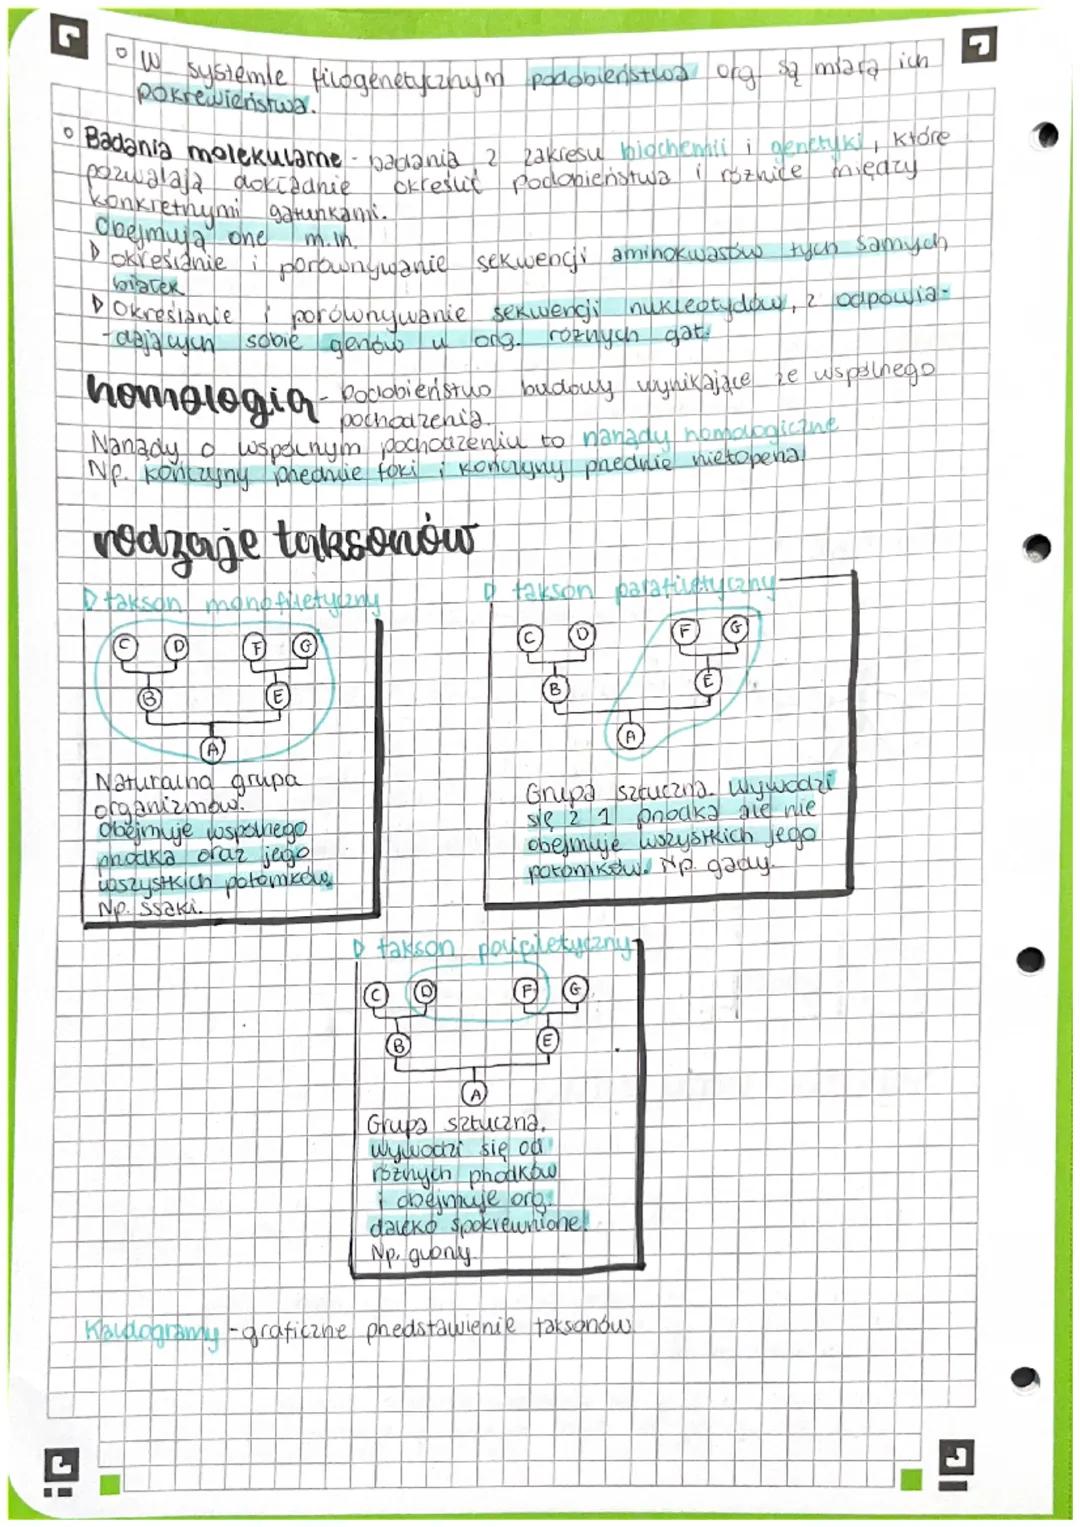 W systemie filogenetycznym podobieństwa org. są miarą ich
pokrewieństwa.
Badania molekularne - badania z zakresu biochemii i genetyki, które
pozwalają dokładnie określić podobieństwa i różnice między
konkretnymi gatunkami.
Obejmują one m.in.
określanie i porównywanie sekwencji aminokwasów tych samych
białek
Określanie i porównywanie sekwencji nukleotydów, z odpowia-
-dających sobie genów u org. różnych gat.
homologia - Podobieństwo budowy wynikające ze wspólnego
pochodzenia.
Narządy o wspólnym pochodzeniu to narządy homologiczne
Np. kończyny przednie foki i kończyny przednie nietopeża.
rodzaje taksonów
takson monofiletyczny
C D F G
B E
A
Naturalna grupa
organizmów.
Obejmuje wspólnego
przodka oraz jego
wszystkich potomków.
Np. ssaki.
takson parafiletyczny
C D F G
B E
A
Grupa sztuczna. Wywodzi
się z 1 przodka ale nie
obejmuje wszystkich jego
potomków. Np. gady.
takson polifiletyczny
C D F G
B E
A
Grupa sztuczna.
Wywodzi się od
różnych przodków
i obejmuje org.
daleko spokrewnione.
Np. glony.
Kladogramy - graficzne przedstawienie taksonów